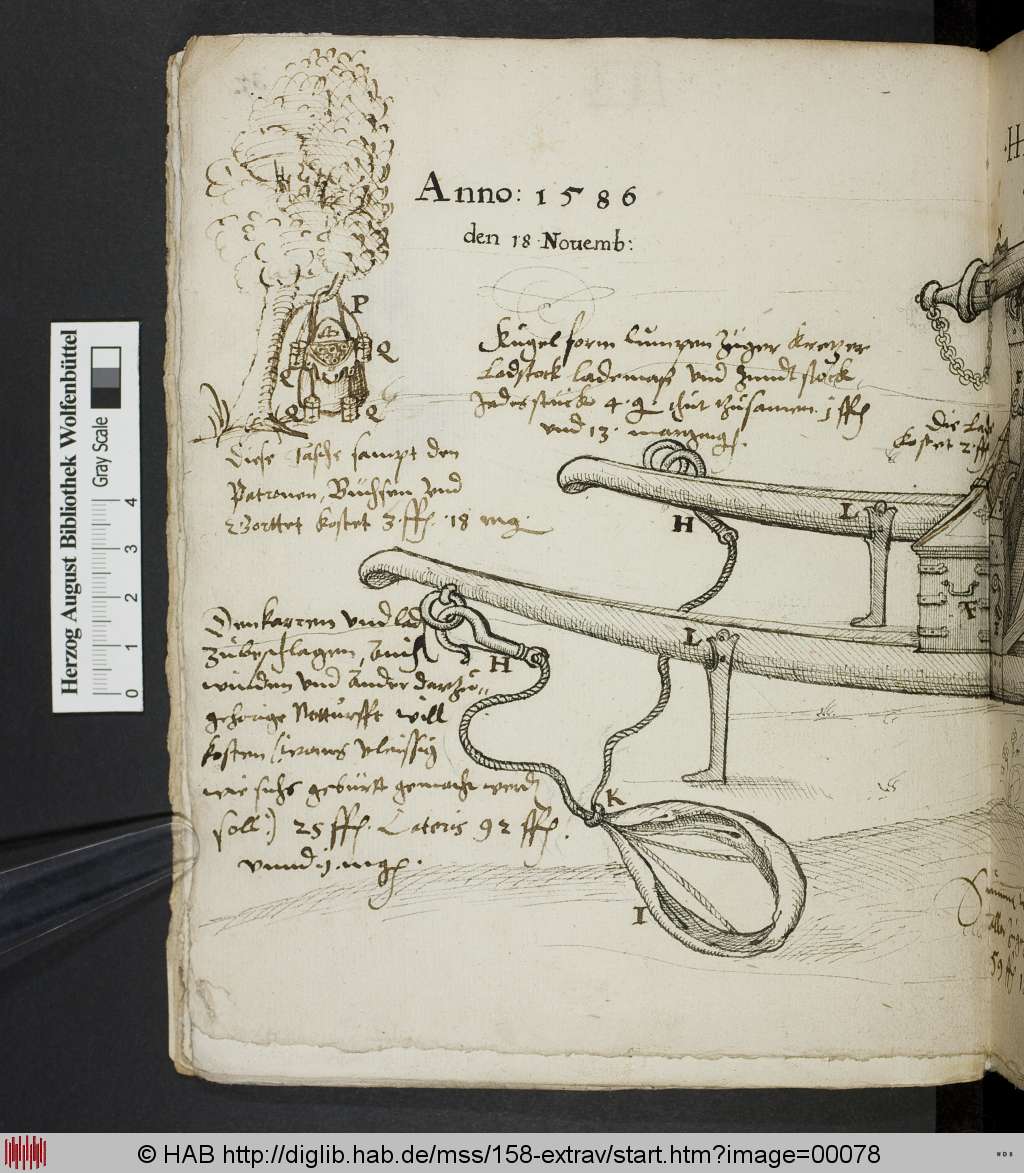 Anno: 1586
den 18 Nouemb:
P
Q
Q
Q
Q
Kugel form
Ladstock lademaß vnd Zündt stöck
Jedes stück 4. g thut Zusamen. 1 ffl
vnd 13.
Die Lad
kostet 2. ff
Diese Tasche sampt den
Patronen, Büchsen vnd
kostet 3. ffl. 18 mg.
H
L
F
Den karren vnd lad
Zubeschlagen, Auch
winden vnd Ander darzu=
gehörige Notturfft will
kosten
wie sichs gebürtt gemacht werd
soll:) 25 ffl. Lateris 92 ffl.
vnnd .1. mg.
H
L
K
I
59 ff
Herzog August Bibliothek Wolfenbüttel
Gray Scale
0 1 2 3 4
© HAB http://diglib.hab.de/mss/158-extrav/start.htm?image=00078